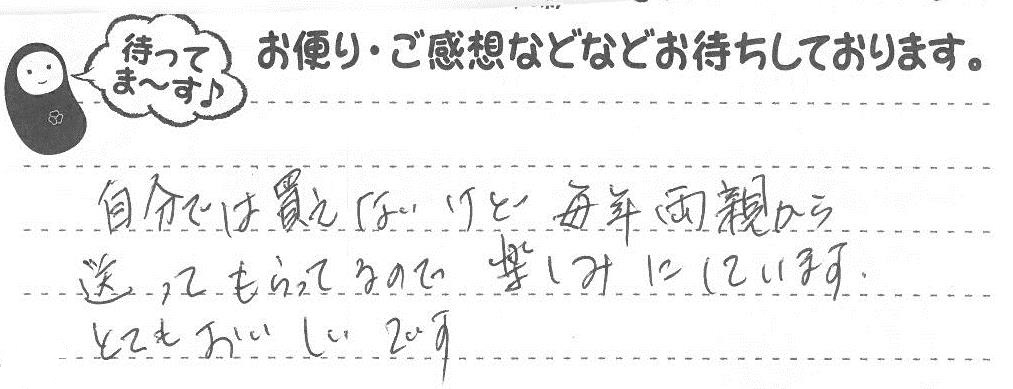 待って
ま〜す♪
お便り・ご感想などなどお待ちしております。
自分では買えないけど毎年両親から
送ってもらってるので楽しみにしています.
とてもおいしいです